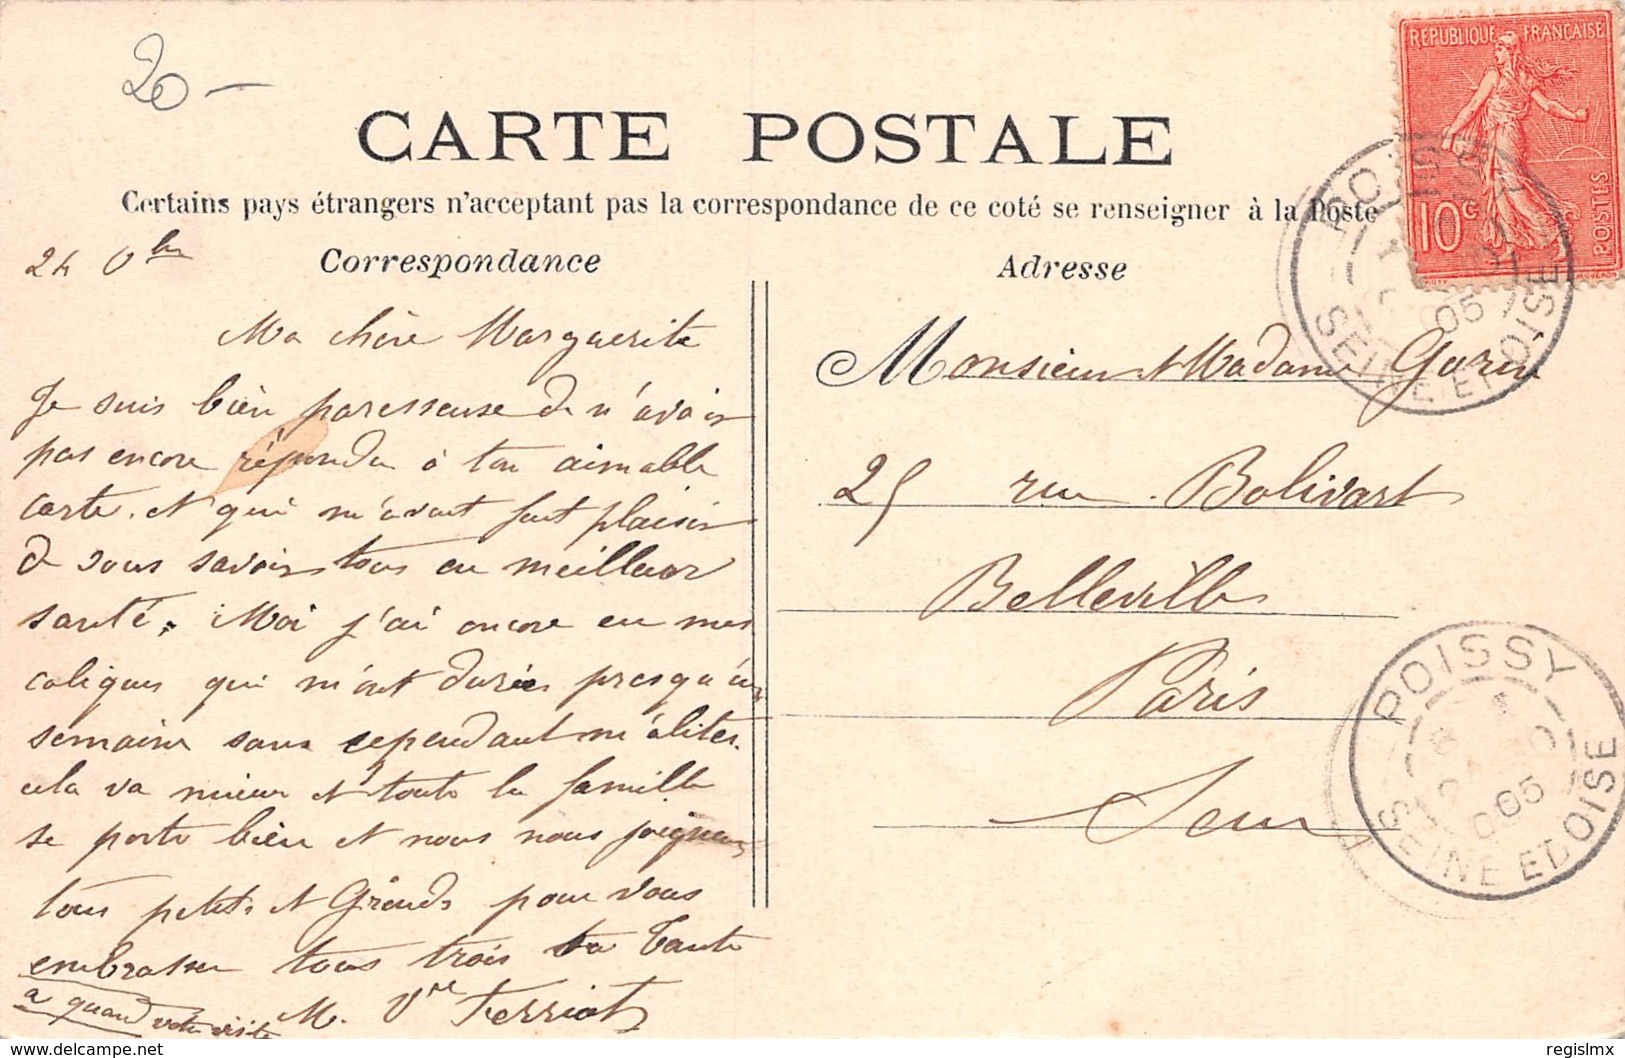 20 —
REPUBLIQUE FRANÇAISE
10 c
POSTES
CARTE POSTALE
Certains pays étrangers n'acceptant pas la correspondance de ce coté se renseigner à la Poste
24 8bre
Correspondance
Adresse
Ma chère Marguerite
Je suis bien paresseuse de n'avoir
pas encore répondu à ton aimable
carte. et qui m'avait fait plaisir
de vous savoir tous en meilleur
santé. Moi j'ai encore eu mes
coliques qui m'ont durées presqu'un
semaine sans cependant m'alites.
cela va mieux et toute la famille
se porte bien et nous nous joignons
tous petits et Grands pour vous
embrasser tous trois ta Tante
M. Vve Terriot
a quand votre visite
Monsieur et Madame Gorin
25 rue Bolivart
Belleville
Paris
Seine
POISSY
05
SEINE ET OISE
POISSY
05
SEINE ET OISE
delcampe.net
regislmx